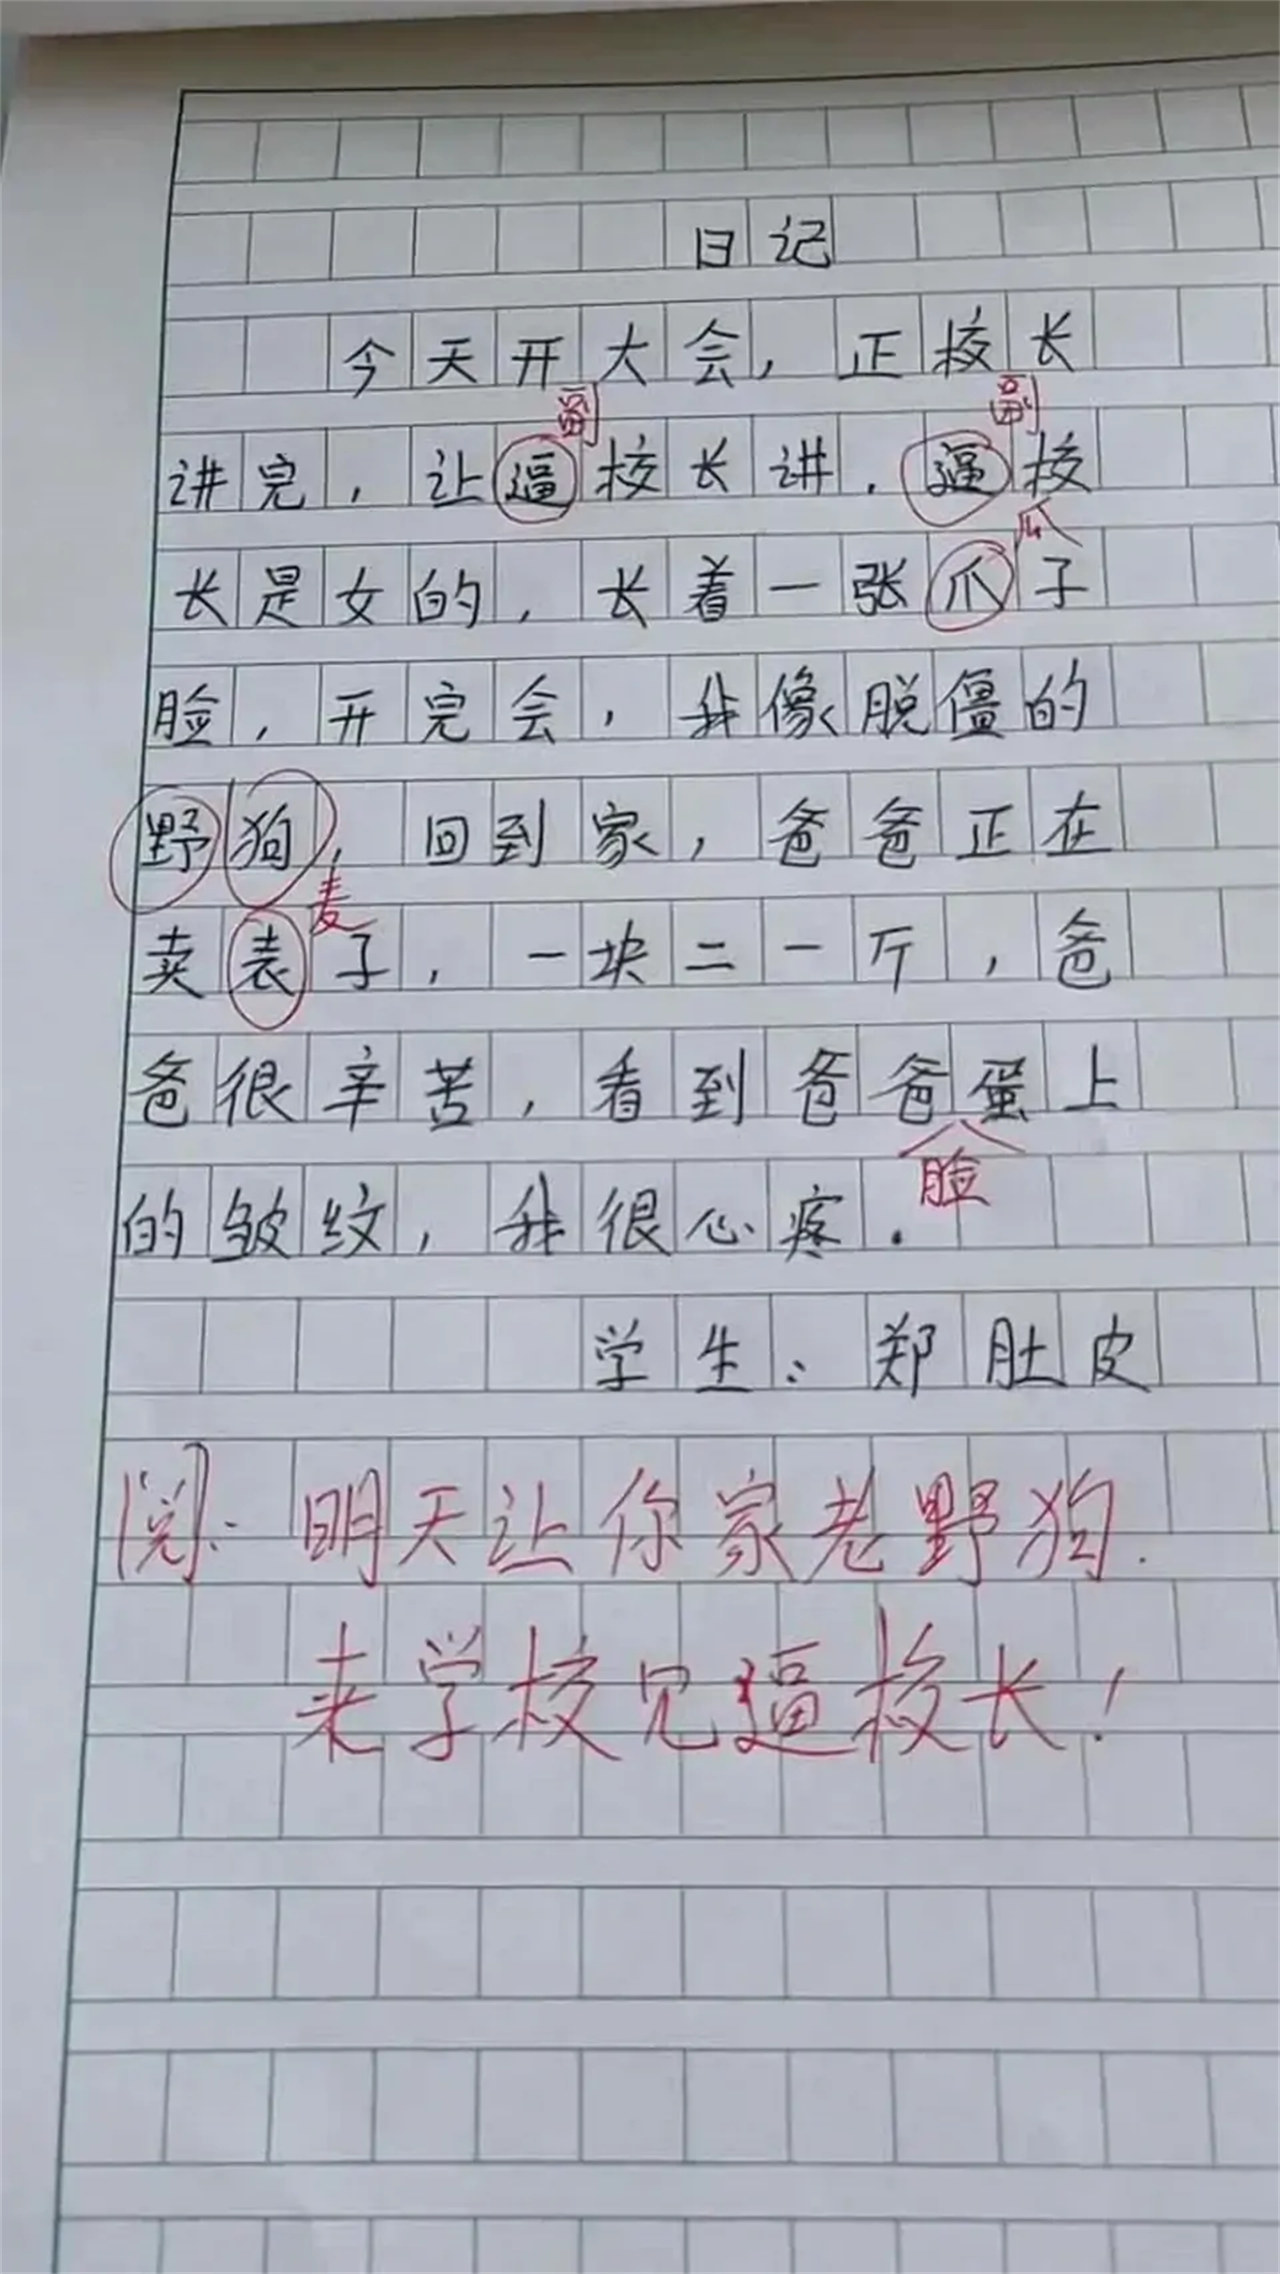 日记
今天开大会，正校长
副 副
讲完，让逼校长讲．逼校
瓜
长是女的，长着一张爪子
脸，开完会，我像脱僵的
野狗，回到家，爸爸正在
麦
卖表子，一块二一斤，爸
爸很辛苦，看到爸爸蛋上
脸
的皱纹，我很心疼．
学生：郑肚皮
阅：明天让你家老野狗．
来学校见逼校长！